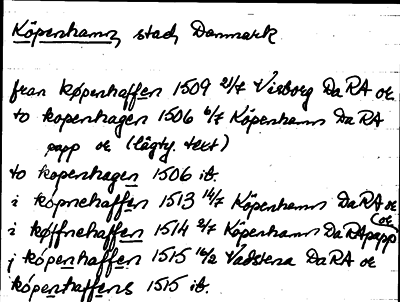 Köpenhamn, stad, Danmark
fran køpenhaffen 1509 2/7 Visborg DaRA or.
to kopenhagen 1506 6/7 Köpenhamn DaRA
papp or (lågty. text)
to kopenhagen 1506 ib.
i köpnehaffen 1513 14/7 Köpenhamn DaRA or
i køffnehaffen 1514 2/7 Köpenhamn DaRApapp (or
j köpenhaffen 1515 16/2 Vadstena DaRA or
köpenhaffens 1515 ib.